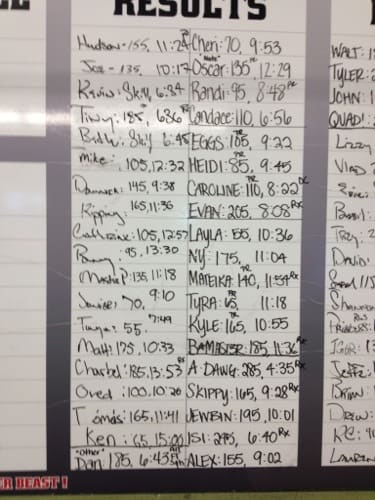 RESULTS
Hudson-155, 11:24
Joe-135, 10:17
Kevin: 8kg, 6:24
185, 6:36
Brd W: 8kg 6:45
Mike: 105, 12:32
145, 9:38
Kipping 165, 11:36
Catherine: 105, 12:57
Penny: 95, 13:30
135, 11:18
Janise: 70, 9:10
Tanya: 55, 7:49
Matt: 175, 10:33
Charbel: 185, 13:53
Oved: 100, 10:20
Tomás: 165, 11:41
Ken: 65, 15:00
"Other" Dan: 185, 6:43
Cheri: 70, 9:53
Oscar: 135 PR, 12:29
Randi: 95, 8:48 PR
Candace: 110, 6:56
EGGS: 105, 9:22
PR
HEIDI: 85, 9:45
PR
CAROLINE: 110, 8:22 DC
EVAN: 205, 8:08 RX
LAYLA: 55, 10:36
NY: 175, 11:04
MATEIKA: 140, 11:59 RX
PR
TYRA: 65, 11:18
PR
KYLE: 165, 10:55
BAMASTER: 185, 11:36
A DAWG: 285, 4:35 RX
SKIPPY: 165, 9:28 RX
JEWBIN: 195, 10:01
ISI: 275, 6:40 RX
ALEX: 155, 9:02
WALT:
TYLER:
JOHN:
QUAD:
Lizzy
VLAD
Troy:
DAVID:
IGOR:
Jeffe:
Brian:
DREW:
RC:
LAUREN
R BEAST!